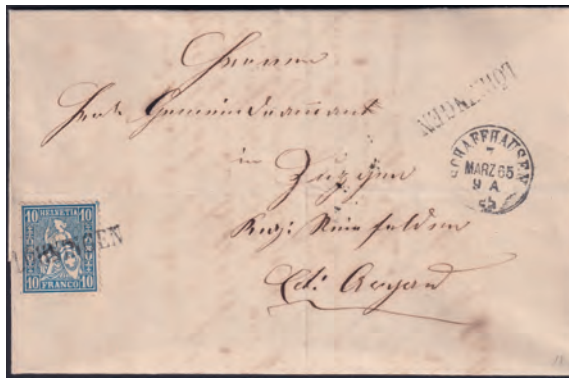 Herrn
Gemeindeammann
in
Zuzgen
Bez: Rheinfelden
Ct: Aargau
LOHNINGEN
SCHAFFHAUSEN
7
MARZ 65
9 A
10 HELVETIA 10
LOHNINGEN
10 FRANCO 10